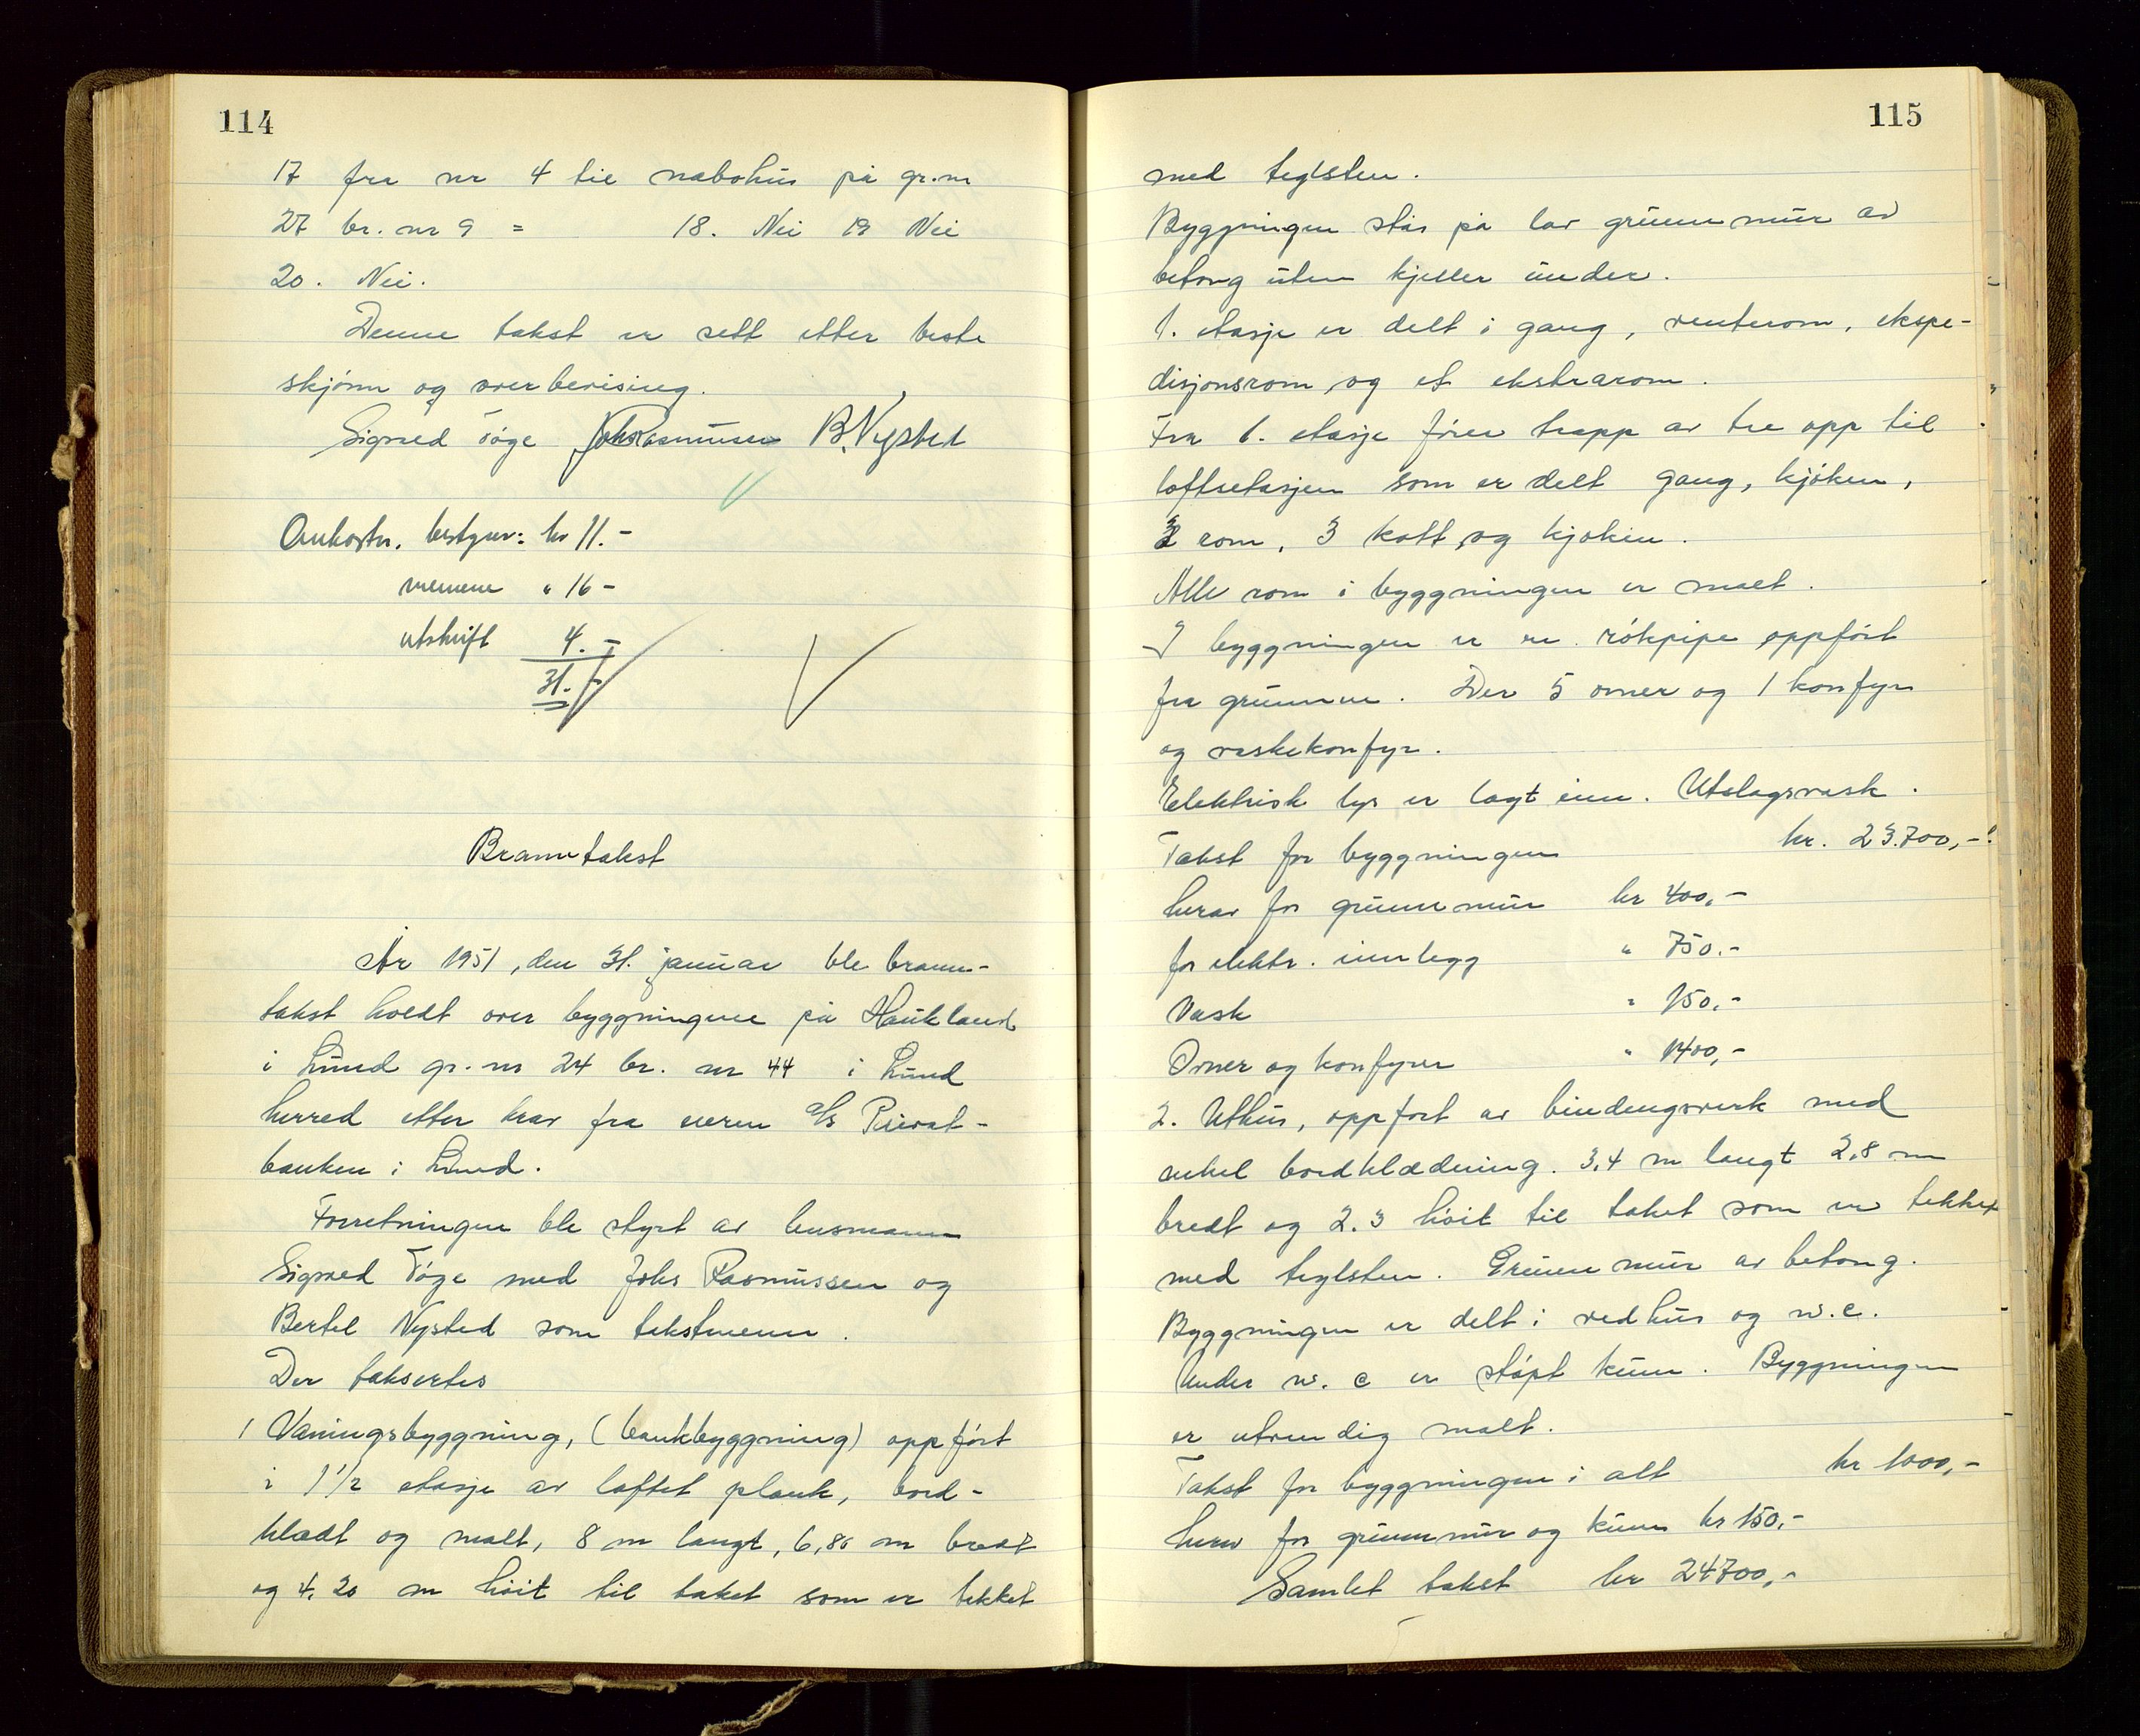 114
17 fra nr 4 til nabohus på gr.nr
27 br. nr 9 = 18. Nei 19 Nei
20. Nei.
Denne takst er sett etter beste
skjønn og overbevising.
Sigved Tøge Johs Rasmussen B. Nysted
Omkostn. bestyrer: kr 11.-
mennene " 16 -
utskrift 4.-
31.-
Branntakst
År 1951, den 31. januar ble brann-
takst holdt over byggningene på Haukland
i Lund gr. nr 24 br. nr 44 i Lund
herred etter krav fra eieren a/s Privat-
banken i Lund.
Forretningen ble styrt av lensmann
Sigved Tøge med Johs Rasmussen og
Bertel Nysted som takstmenn.
Der taksertes
1 Våningsbyggning, (bankbyggning) oppført
i 1 1/2 etasje av laftet plank, bord-
kledt og malt, 8 m langt, 6,80 m bredt
og 4,20 m høit til taket som er tekket
115
med teglsten.
Byggningen står på lav grunnmur av
betong uten kjeller under.
1. etasje er delt i gang, venterom, ekspe-
disjonsrom, og et ekstrarom.
Fra 1. etasje fører trapp av tre opp til
loftsetasjen som er delt gang, kjøken,
3 rom, 3 kott, og kjøken.
Alle rom i byggningen er malt.
I byggningen er en røkpipe oppført
fra grunnen. Der 5 ovner og 1 komfyr
og vaskekomfyr.
Elektrisk lys er lagt inn. Utslagsvask.
Takst for byggningen kr. 23.700,-
herav for grunnmur kr 400,-
for elektr. innlegg " 750.-
Vask " 150,-
Ovner og komfyrer " 1400,-
2. Uthus, oppført av bindingsverk med
enkel bordklædning. 3,4 m langt 2,8 m
bredt og 2.3 høit til taket som er tekket
med teglsten. Grunnmur av betong.
Byggningen er delt i vedhus og w.c.
Under w.c er støpt kum. Byggningen
er utvendig malt.
Takst for byggningen i alt kr 1000,-
herav for grunnmur og kum kr 150,-
Samlet takst kr 24700,-